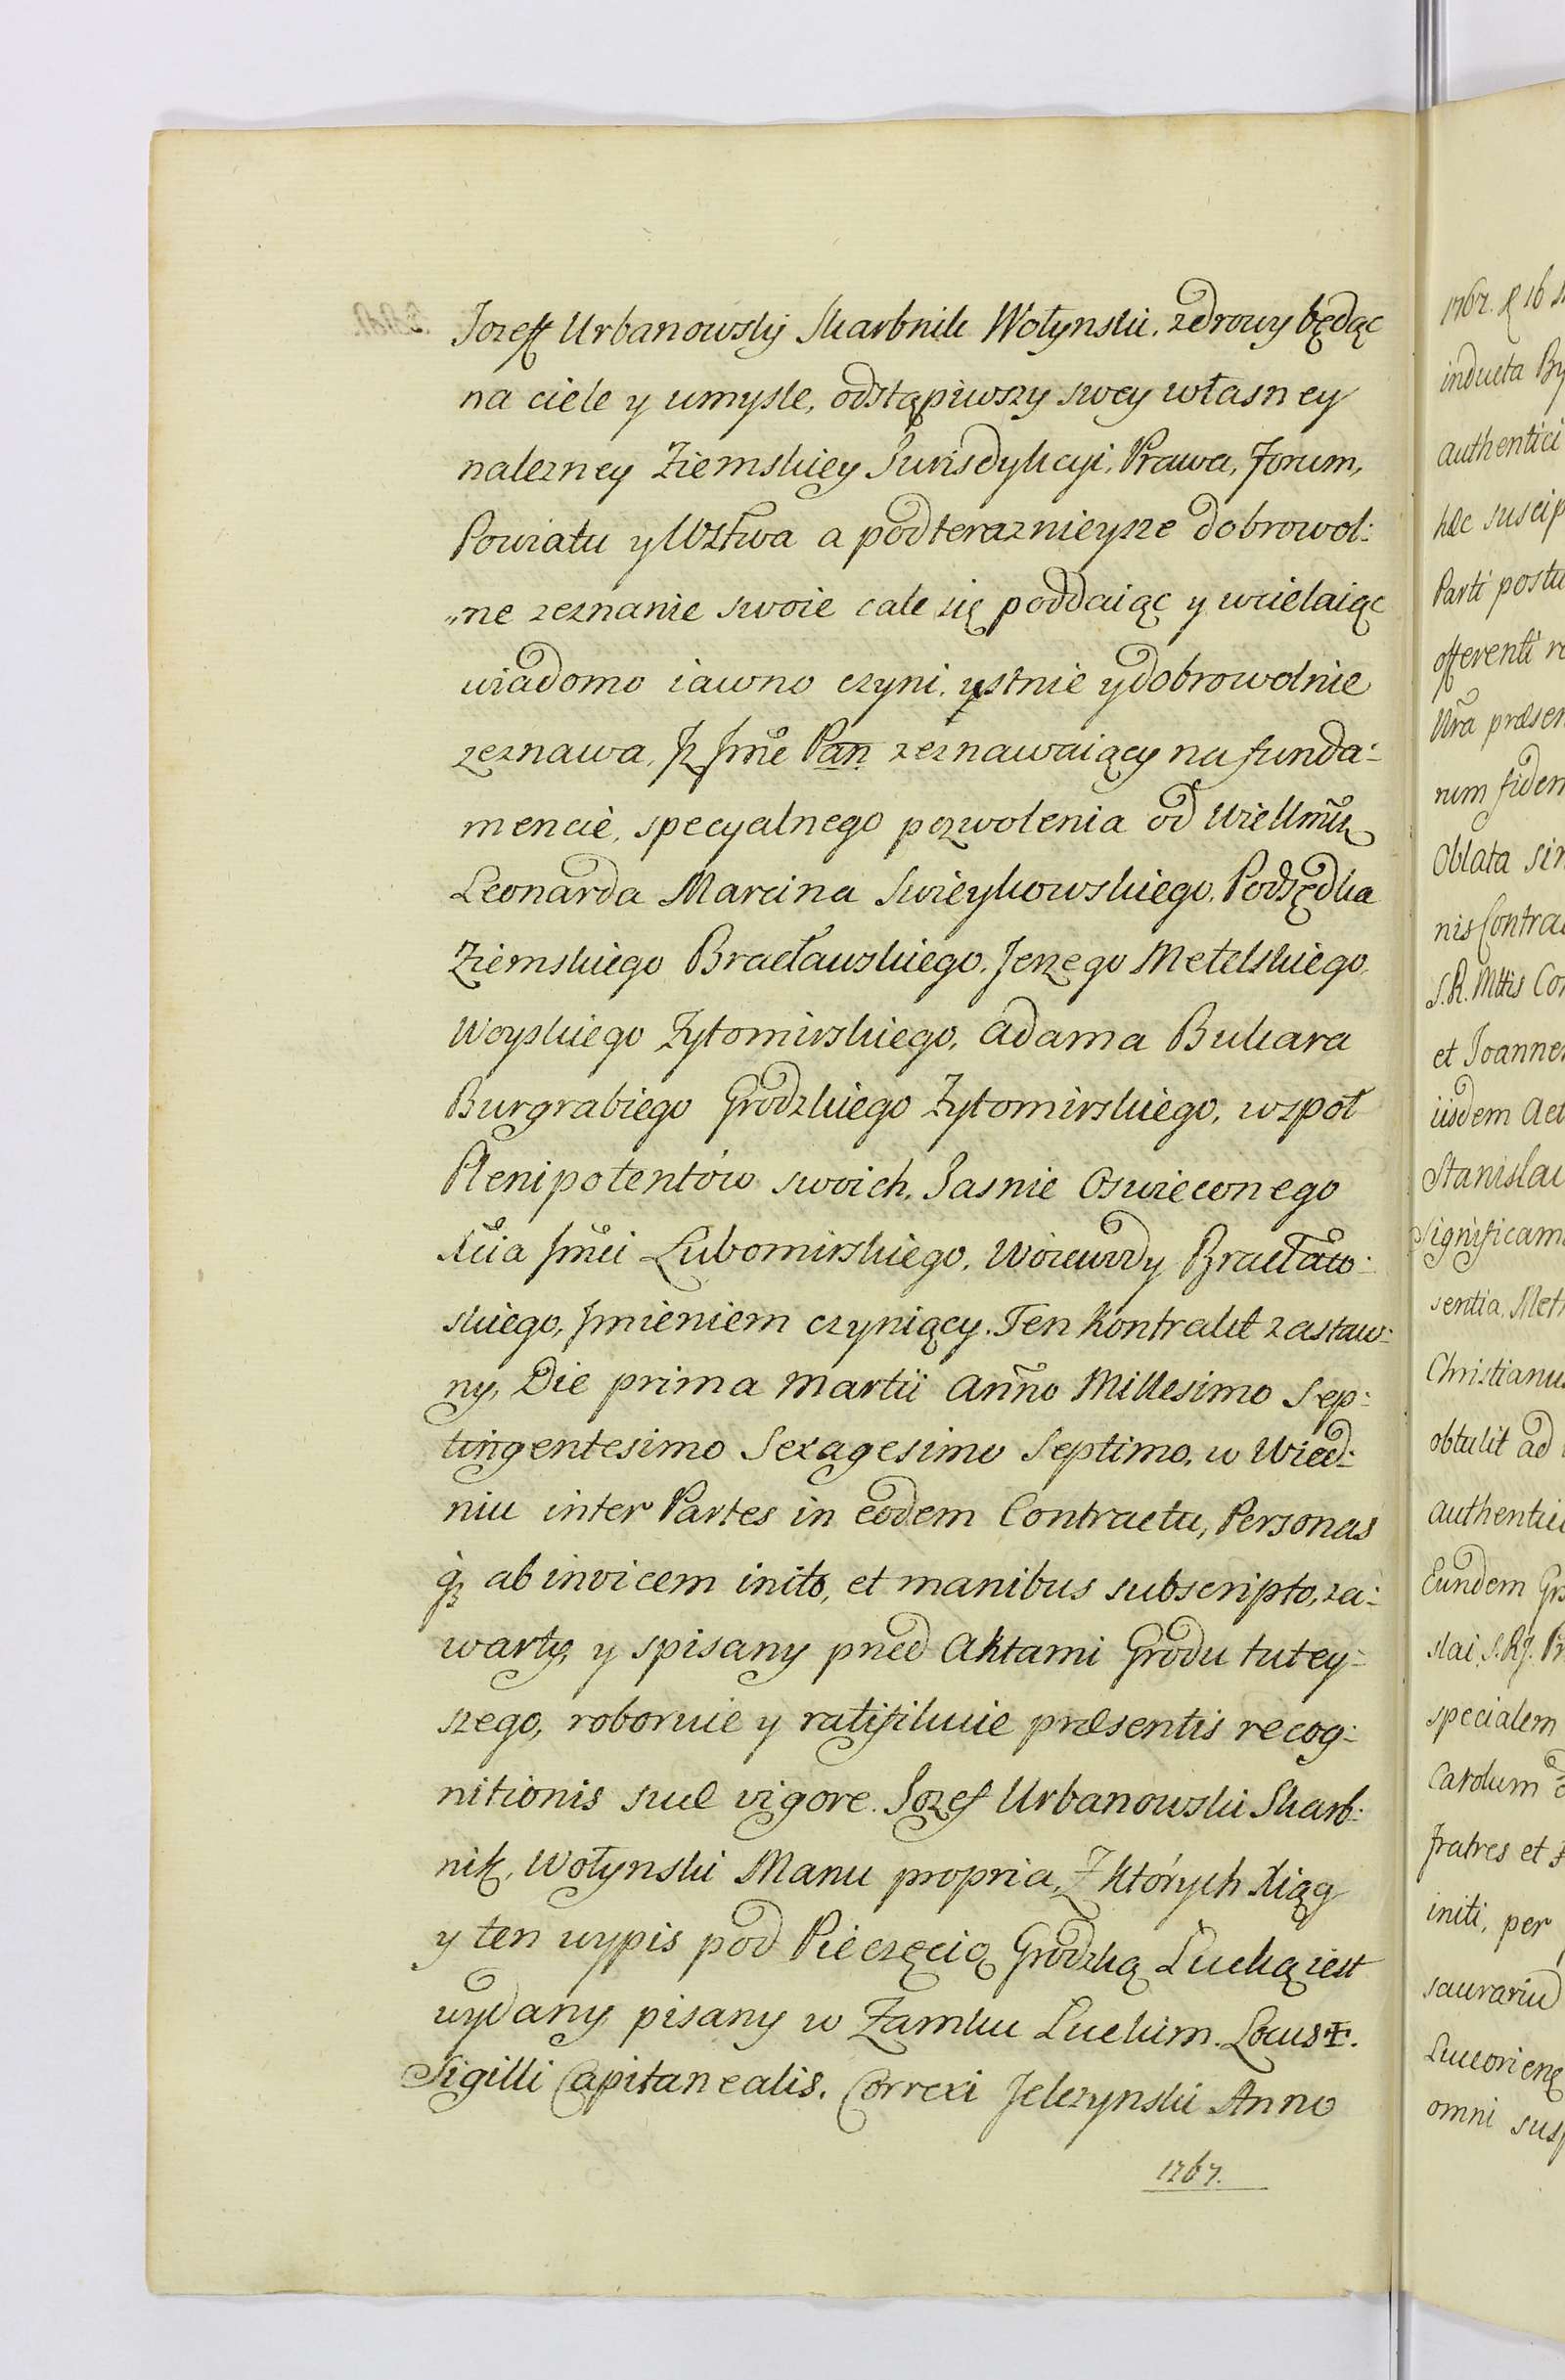 Jozeff Urbanowskÿ Skarbnik Wołynski, zdrowy będąc
na ciele y umysle, odstąpiwszy swey własney
nalezney Ziemskiey Iurisdykcyi, Prawa, Forum,
Powiatu y Wztwa a pod teraznieysze dobrowol:
„ne zeznanie swoie cale się poddaiąc y wcielaiąc
wiadomo iawno czyni, ystnie y dobrowolnie
zeznawa, Jz Jmẽ Pan zeznawaiący na funda:
mencie, specyalnego pozwolenia od Wiellmũ
Leonarda Marcina Swieykowskiego, Podsędka
Ziemskiego Bracławskiego, Jerzego Metelskiego,
Woyskiego Zytomirskiego, Adama Bukara
Burgrabiego Grodzkiego Zytomirskiego, wspoł
Plenipotentów swoich, Jasnie Oswieconego
Xcia Jmci Lubomirskiego, Woiewody Bracław:
skiego, Jmieniem czyniący. Ten Kontrakt zastaw:
ny, Die prima Martii Anño Millesimo Sep:
tingentesimo Sexagesimo Septimo, w Wied:
niu inter Partes in eodem Contractu, Personas
qz ab invicem inito, et manibus subscripto, za:
warty, y spisany pned Aktami Grodu tutey:
szego, roboruie y ratifikuie præsentis recog:
nitionis suæ vigore. Jozef Urbanowski Skarb:
nik, Wołynski Manu propria, Z których Xiąg
y ten wypis pod Pieczęcią Grodzką Lucką iest
wydany pisany w Zamku Luckim. Locus ✠.
Sigilli Capitanealis. Correxi Jelczynski Anno
1767.
1767. d 16
inducta By
authentici
hæc suscip
Parti postu
offerenti re
Nrã præsen
rum fidem
Oblata sin
nis Contrac
S.R. Mttis Con
et Joannes
iisdem Act
Stanislau
Significam
sentia, Met
Christianus
obtulit ad
authentici
Eundem Gr
slai, S.R.J. Pr
specialem
Carolum
fratres et
initi, per
saurariũ
Luceorienę
omni susp